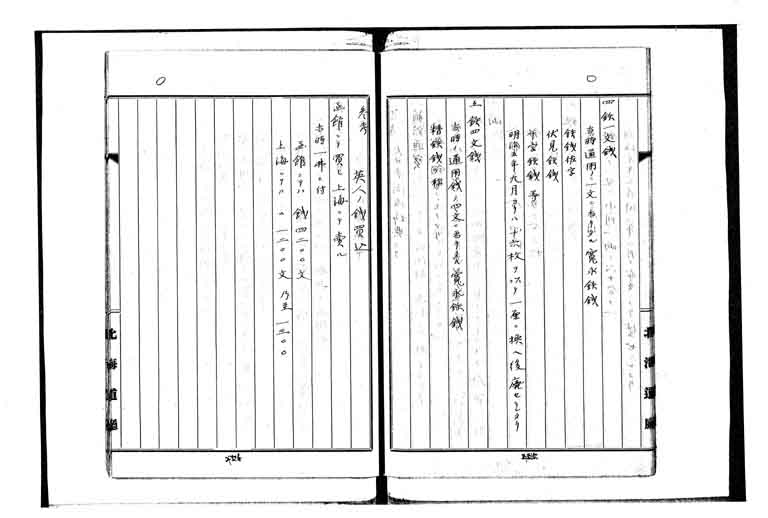 四 鉄一文銭
当時通用ノ一文ニ当タル寛永鉄銭
鉄銭佐字
伏見鉄銭
鉄銭 等
明治五年九月 十六枚ヲ以テ一厘ニ換ヘ後廃セラレタリ
五 鉄四文銭
当時ノ通用銭ノ四文ニ 寛永鉄銭
精鉄銭
北海道庁
参考 英人ノ銭買込
函館ニテ買ヒ上海ニテ売ル
当時一弗ニ付
函館ニテハ 銭四二〇〇文
上海ニテハ 〃 一二〇〇文乃至一三〇〇
北海道庁